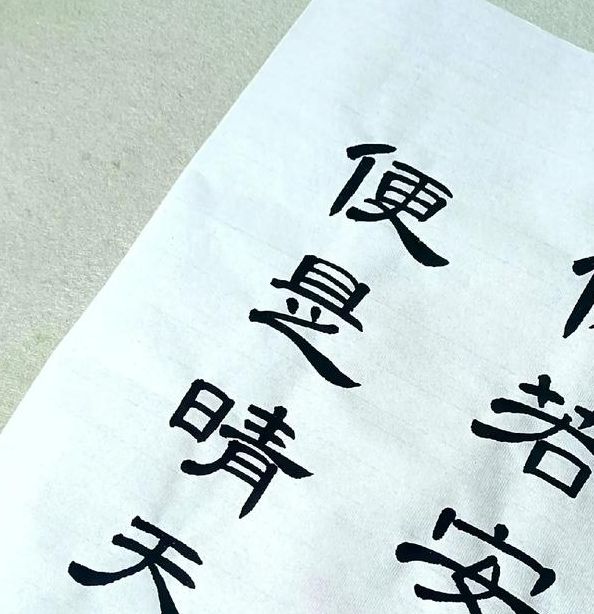 若安
便是晴天